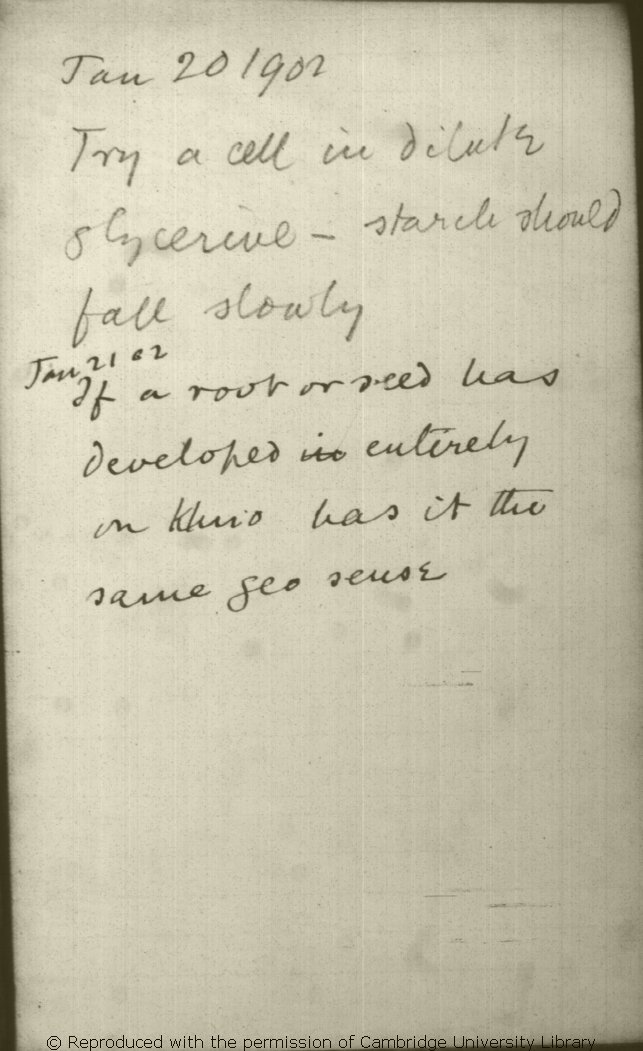 Jan 20 1902
Try a cell in dilute
glycerine – starch should
fall slowly
Jan 21 02
If a root or seed has
developed in entirely
on Klino has it the
same geo sense
© Reproduced with the permission of Cambridge University Library